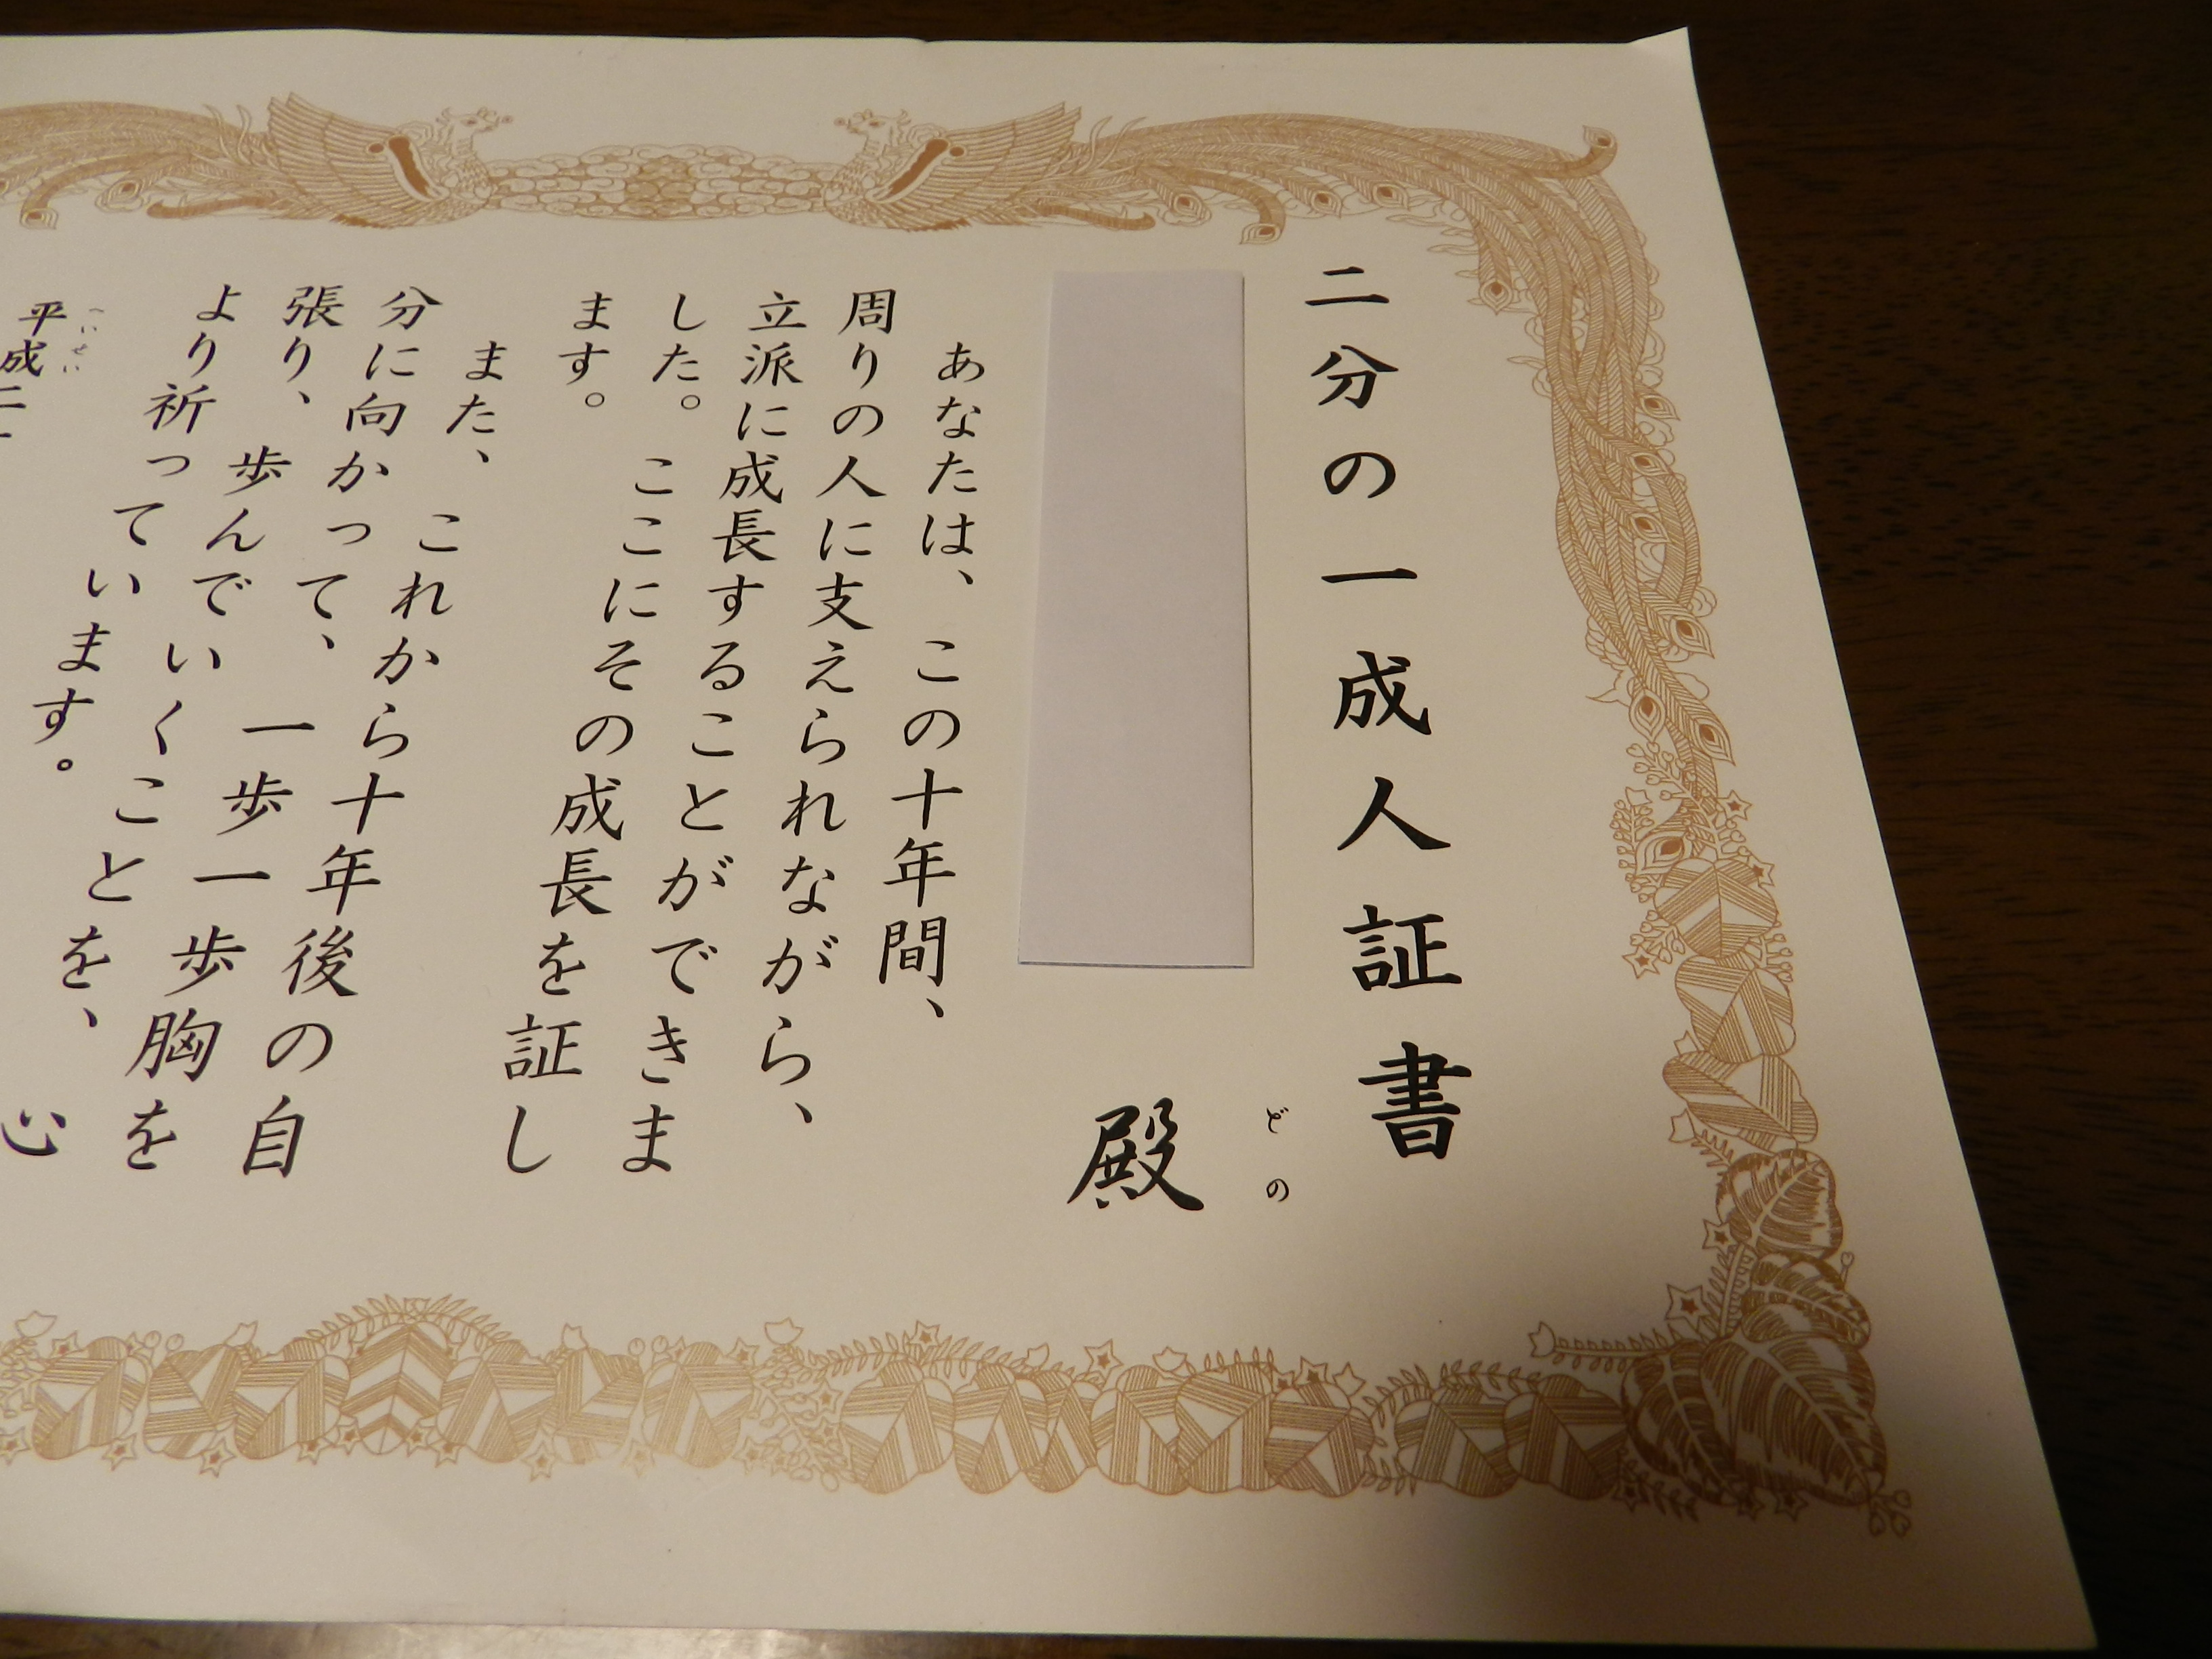 二分の一成人証書
どの
殿
あなたは、この十年間、
周りの人に支えられながら、
立派に成長することができま
した。ここにその成長を証し
ます。
また、これから十年後の自
分に向かって、一歩一歩胸を
張り、歩んでいくことを、心
より祈っています。
へいせい
平成二